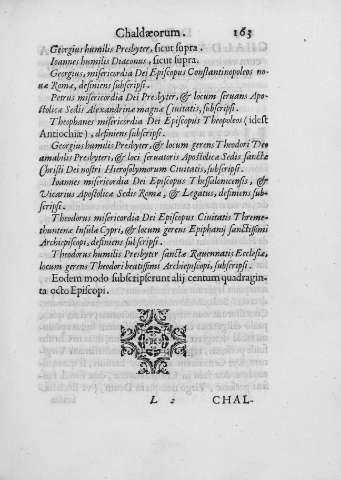 Chaldæorum. 163
Georgius humilis Presbyter, sicut supra.
Ioannes humilis Diaconus, sicut supra.
Georgius, misericordia Dei Episcopus Constantinopoleos no-
uæ Romæ, definiens subscripsi.
Petrus misericordia Dei Presbyter, & locum seruans Apo-
stolicæ Sedis Alexandrinæ magnæ Ciuitatis, subscripsi.
Theophanes misericordia Dei Episcopus Theopoleos (idest
Antiochiæ), definiens subscripsi.
Georgius humilis Presbyter, & locum gerens Theodori Deo
amabilis Presbyteri, & loci seruatoris Apostolicæ Sedis sanctæ
Christi Dei nostri Hierosolymorum Ciuitatis, subscripsi.
Ioannes misericordia Dei Episcopus Thessalonicensis, &
Vicarius Apostolicæ Sedis Romæ, & Legatus, definiens sub-
scripsi.
Theodorus misericordia Dei Episcopus Ciuitatis Threme-
thuntenæ Insulæ Cypri, & locum gerens Epiphanij sanctissimi
Archiepiscopi, definiens subscripsi.
Theodorus humilis Presbyter sanctæ Rauennatis Ecclesiæ,
locum gerens Theodori beatissimi Archiepiscopi, subscripsi.
Eodem modo subscripserunt alij centum quadragin-
ta octo Episcopi.
L 2 CHAL-